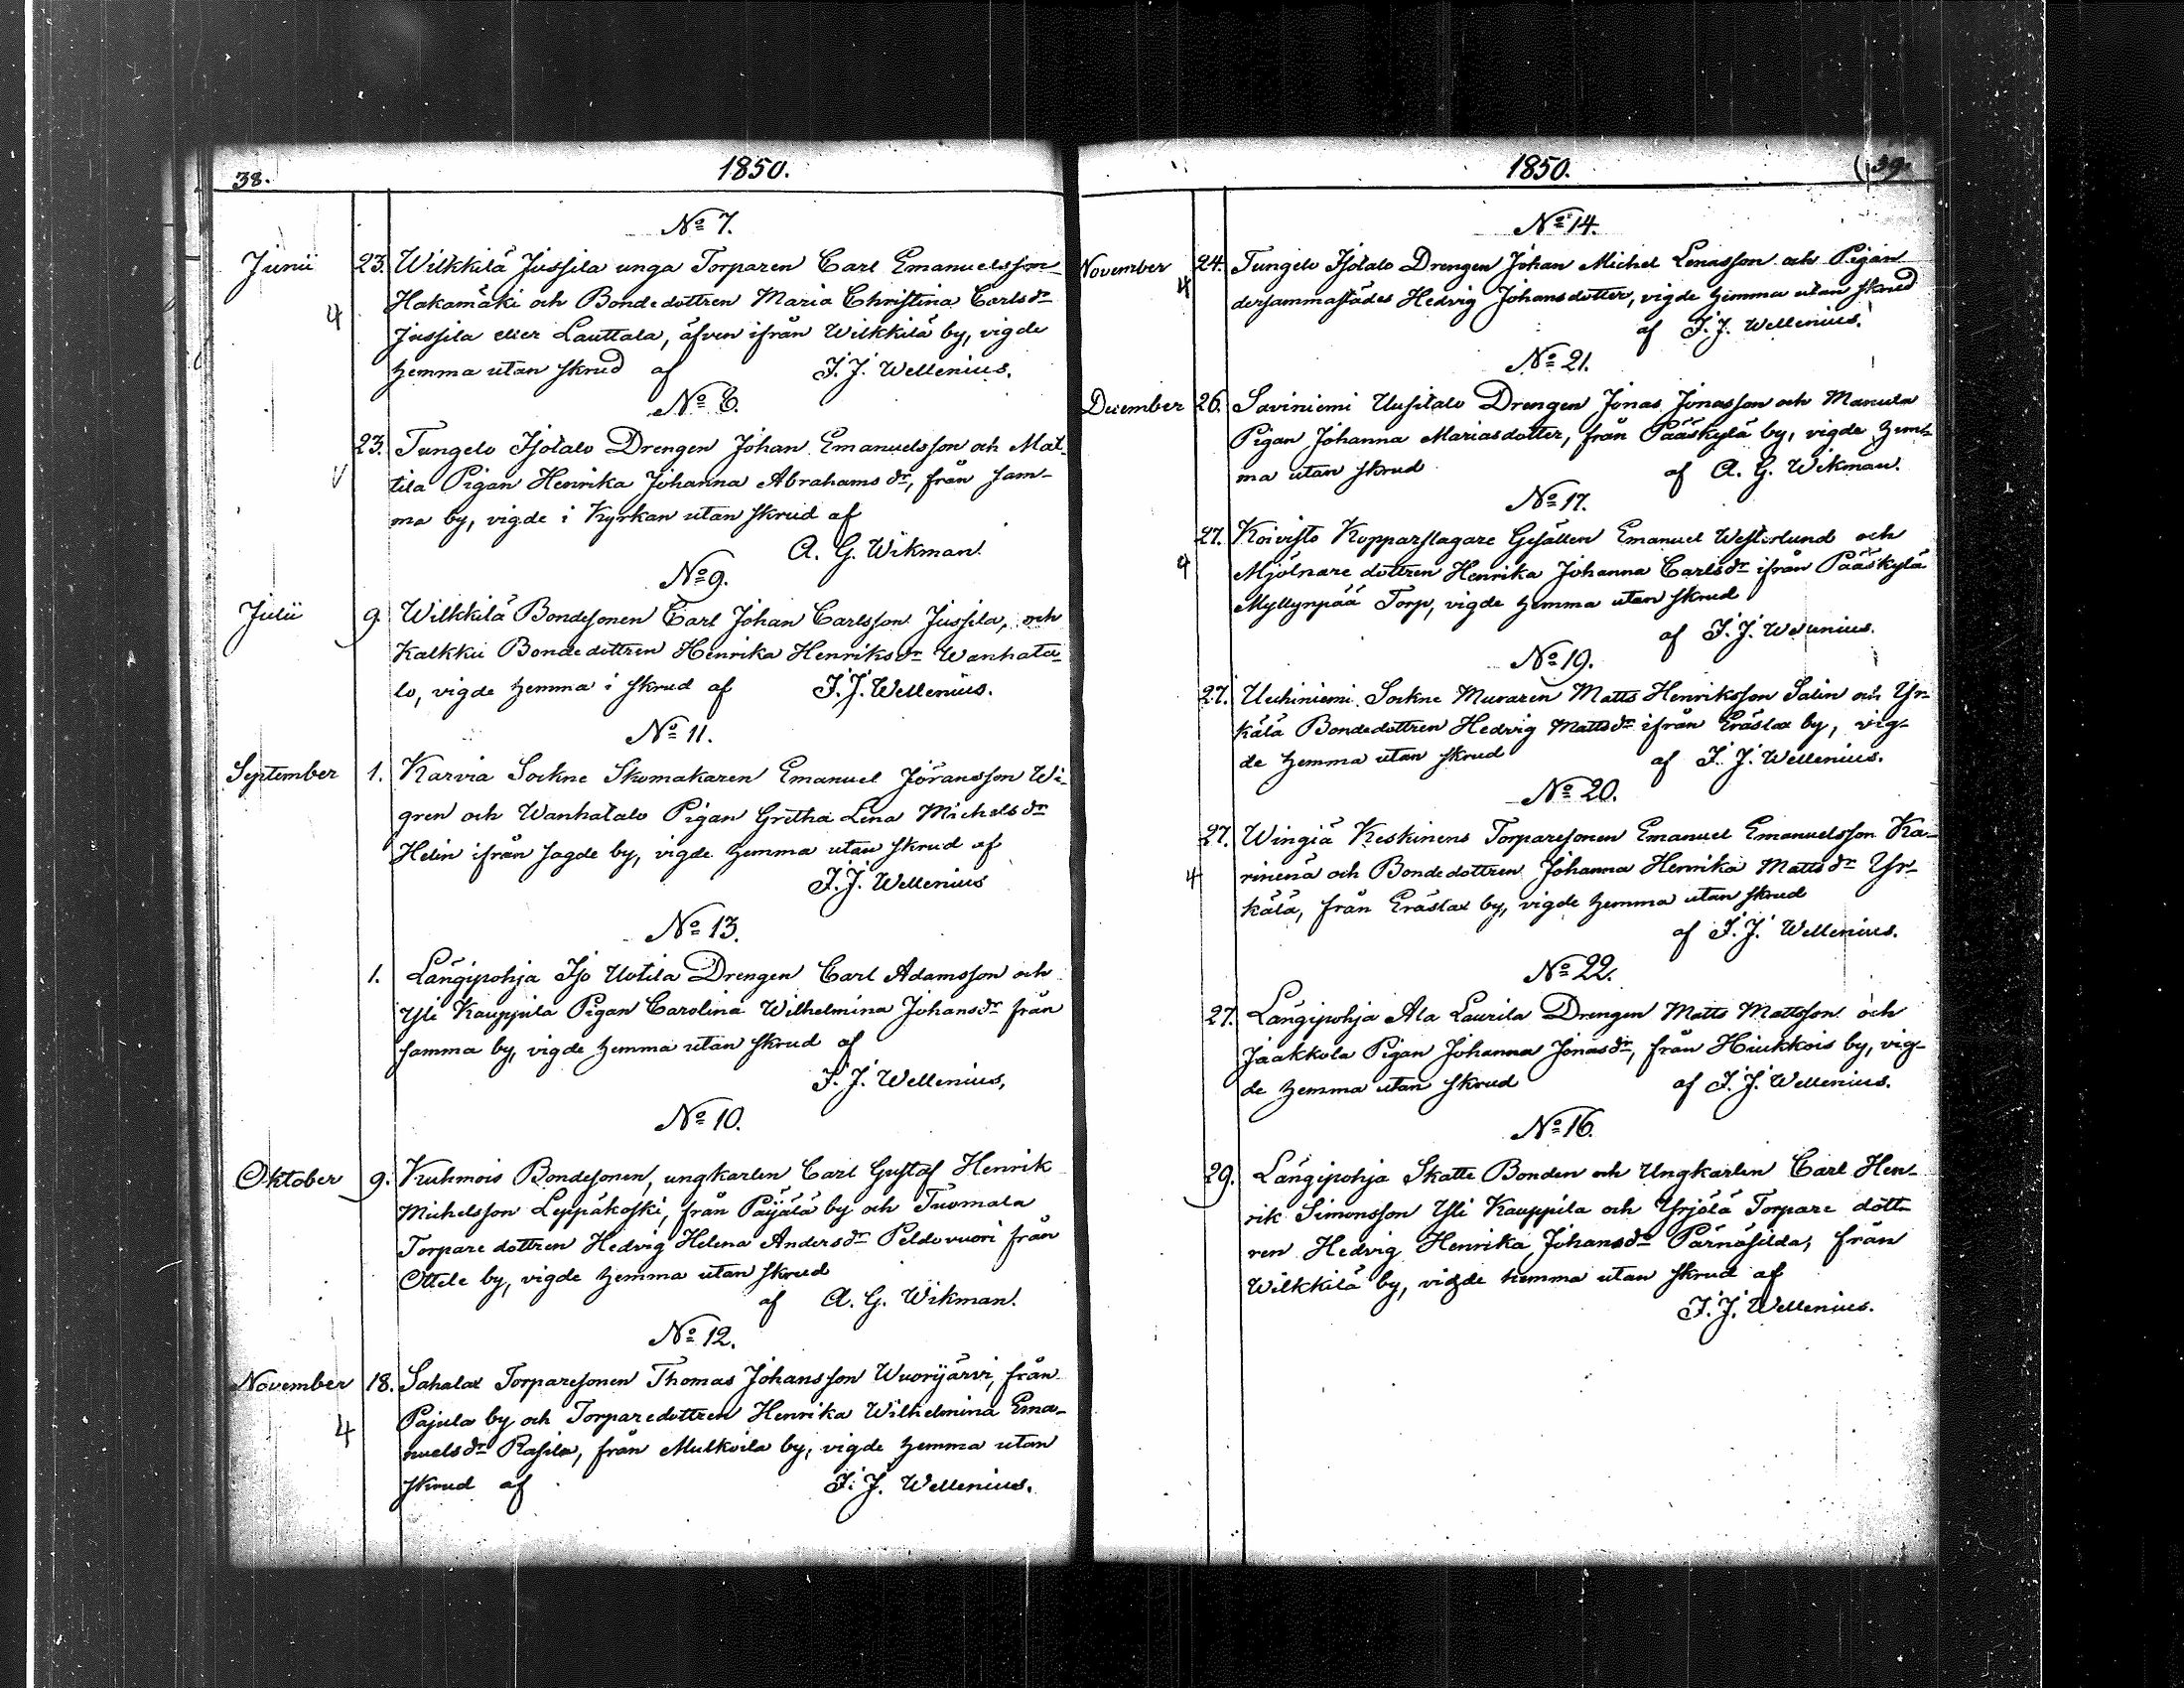 38.
1850.
No 7.
Junii 23. Wilkkilä Jussila unga Torparen Carl Emanuelsson
Hakamäki och Bondedottren Maria Christina Carlsdr
4
Jussila eller Lauttala, äfven ifrån Wilkkilä by, vigde
hemma utan skrud af J. J. Wellenius.
No 8.
23. Tungelo Isotalo Drengen Johan Emanuelsson och Mat-
tila Pigan Henrika Johanna Abrahamsdr, från sam-
ma by, vigde i Kyrkan utan skrud af
A. G. Wikman.
No 9.
Julii 9. Wilkkilä Bondesonen Carl Johan Carlsson Jussila, och
Kalkku Bondedottren Henrika Henriksdr Wanhata-
lo, vigde hemma i skrud af J. J. Wellenius.
No 11.
September 1. Karvia Sockne Skomakaren Emanuel Jöransson Wi-
gren och Wanhatalo Pigan Gretha Lena Michelsdr
Helin ifrån Sagde by, vigde hemma utan skrud af
J. J. Wellenius
No 13.
1. Längipohja Iso Uotila Drengen Carl Adamsson och
Yli Kauppila Pigan Carolina Wilhelmina Johansdr från
samma by, vigde hemma utan skrud af
J. J. Wellenius,
No 10.
Oktober 9. Kuhmois Bondesonen, ungkarlen Carl Gustaf Henrik
Michelsson Leppäkoski, från Päijälä by och Tuomala
Torpare dottren Hedvig Helena Andersdr Peldovuori från
Ottele by, vigde hemma utan skrud
af A. G. Wikman.
No 12.
November 18. Sahalax Torparesonen Thomas Johansson Wuorijärvi, från
Pajula by och Torparedottren Henrika Wilhelmina Ema-
4
nuelsdr Rasila, från Mulkoila by, vigde hemma utan
skrud af J. J. Wellenius.
1850.
39.
No 14.
November 24. Tungelo Isotalo Drengen Johan Michel Lenasson och Pigan
4
dersammastädes Hedvig Johansdotter, vigde hemma utan skrud
af J. J. Wellenius.
No 21.
December 26. Saviniemi Uusitalo Drengen Jonas Jonasson och Manula
Pigan Johanna Mariasdotter, från Pääskylä by, vigde hem-
ma utan skrud af A. G. Wikman.
No 17.
27. Koivisto Kopparslagare Gesällen Emanuel Westerlund och
4
Mjölnare dottren Henrika Johanna Carlsdr ifrån Pääskylä
Myllynpää Torp, vigde hemma utan skrud
af J. J. Wellenius.
No 19.
27. Uukiniemi Sockne Muraren Matts Henriksson Salin och Yr-
kälä Bondedottren Hedvig Mattsdr ifrån Eräslax by, vig-
de hemma utan skrud af J. J. Wellenius.
No 20.
27. Wingiä Keskinens Torparesonen Emanuel Emanuelsson Ka-
4
rinenä och Bondedottren Johanna Henrika Mattsdr Yr-
kälä, från Eräslax by, vigde hemma utan skrud
af J. J. Wellenius.
No 22.
27. Längipohja Ala Laurila Drengen Matts Mattsson och
Jaakkola Pigan Johanna Jonasdr, från Hiukkois by, vig-
de hemma utan skrud af J. J. Wellenius.
No 16.
29. Längipohja Skatte Bonden och Ungkarlen Carl Hen-
rik Simonsson Yli Kauppila och Yrjölä Torpare dott-
ren Hedvig Henrika Johansdr Pärnäsilda, från
Wilkkilä by, vigde hemma utan skrud af
J. J. Wellenius.